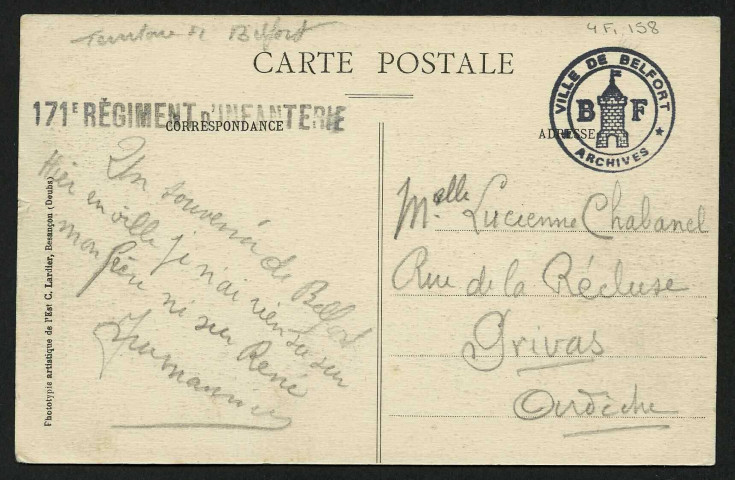 Territoire de Belfort
4 Fi 158
CARTE POSTALE
171E RÉGIMENT D'INFANTERIE
CORRESPONDANCE
ADRESSE
VILLE DE BELFORT
B F
ARCHIVES
Un souvenir de Belfort
Hier en ville je n'ai rien su sur
mon frère ni sur René
Melle Lucienne Chabanel
Rue de la Récluse
Privas
Ardèche
Phototypie artistique de l'Est C. Lardier, Besançon (Doubs)